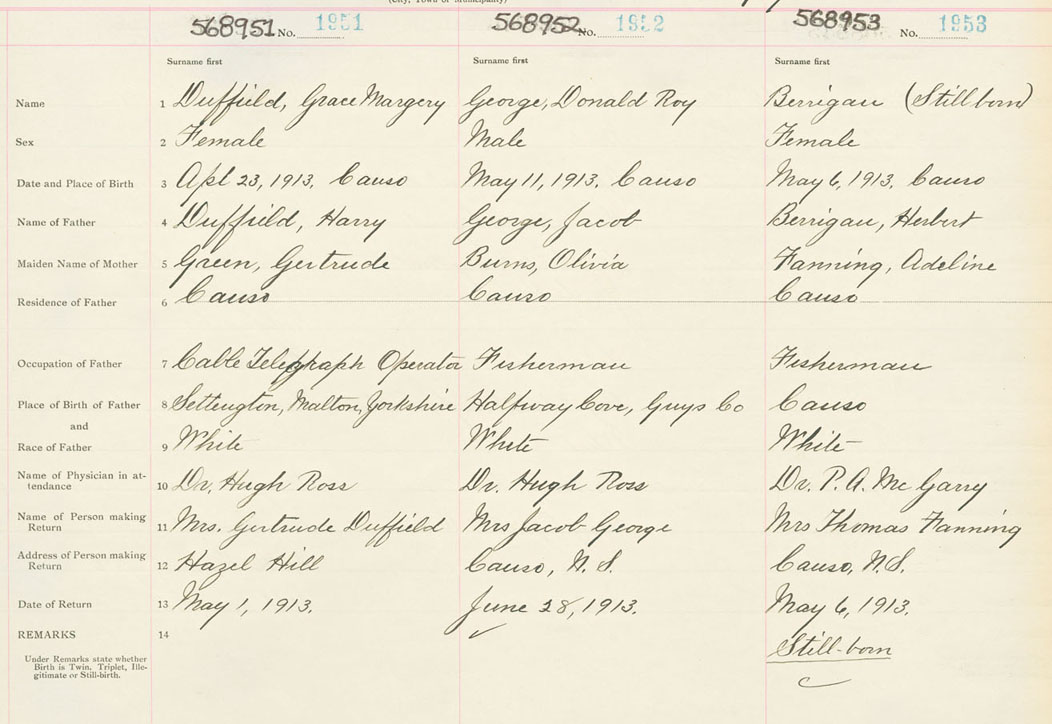 (City, Town or Municipality)
568951 No. 1951 568952 No. 1952 568953 No. 1953
Surname first Surname first Surname first
Name 1 Duffield, Grace Margery George, Donald Roy Berrigan (Stillborn)
Sex 2 Female Male Female
Date and Place of Birth 3 Apl 23, 1913. Canso May 11, 1913. Canso May 6, 1913. Canso
Name of Father 4 Duffield, Harry George, Jacob Berrigan, Herbert
Maiden Name of Mother 5 Green, Gertrude Burns, Olivia Fanning, Adeline
Residence of Father 6 Canso Canso Canso
Occupation of Father 7 Cable Telegraph Operator Fisherman Fisherman
Place of Birth of Father 8 Settington, Malton, Yorkshire Halfway Cove, Guys Co Canso
and
Race of Father 9 White White White
Name of Physician in at-
tendance 10 Dr. Hugh Ross Dr. Hugh Ross Dr. P. A. McGarry
Name of Person making
Return 11 Mrs. Gertrude Duffield Mrs Jacob George Mrs Thomas Fanning
Address of Person making
Return 12 Hazel Hill Canso, N.S. Canso, N.S.
Date of Return 13 May 1, 1913. June 28, 1913. May 6, 1913.
REMARKS 14
Still-born
Under Remarks state whether
Birth is Twin, Triplet, Ille-
gitimate or Still-birth.